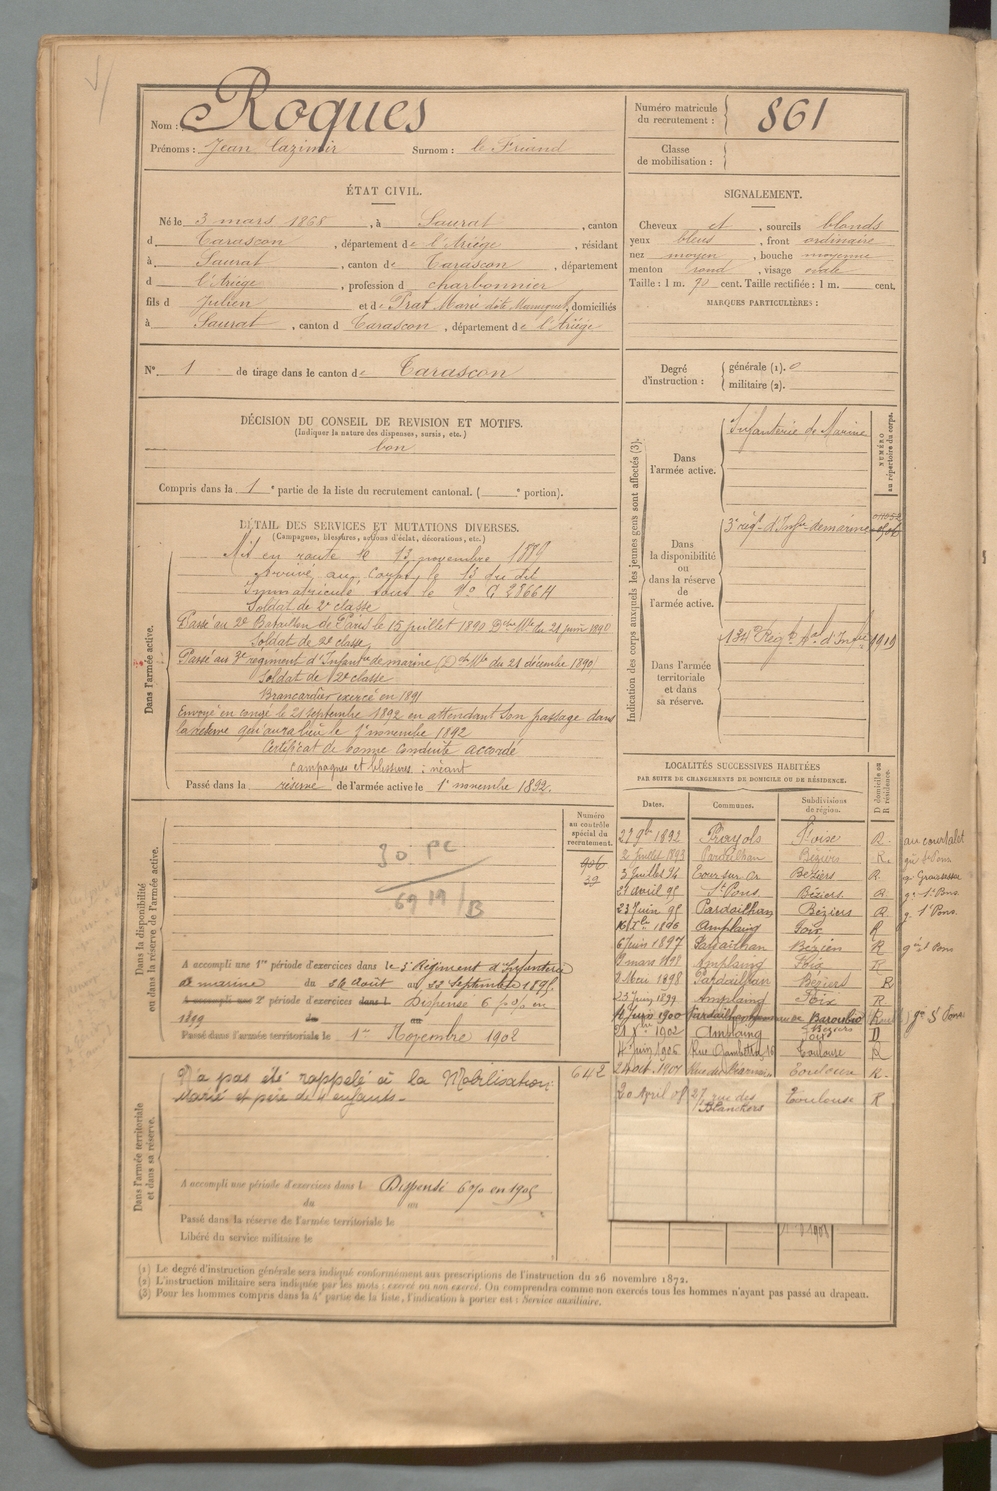 Nom : Roques
Prénoms : Jean Cazimir Surnom : le Friand
Numéro matricule du recrutement : 861
Classe de mobilisation :
ÉTAT CIVIL.
Né le 3 mars 1868, à Saurat, canton
d Tarascon, département de l'Ariège, résidant
à Saurat, canton de Tarascon, département
d l'Ariège, profession d charbonnier
fils d Julien et de Prat Marie dite, domiciliés
à Saurat, canton d Tarascon, département de l'Ariège
N° 1 de tirage dans le canton de Tarascon
SIGNALEMENT.
Cheveux et, sourcils blonds
yeux bleus, front ordinaire
nez moyen, bouche moyenne
menton rond, visage ovale
Taille : 1 m. 70 cent. Taille rectifiée : 1 m. cent.
MARQUES PARTICULIÈRES :
Degré d'instruction : générale (1). 0
militaire (2).
DÉCISION DU CONSEIL DE REVISION ET MOTIFS.
(Indiquer la nature des dispenses, sursis, etc.)
bon
Compris dans la 1e partie de la liste du recrutement cantonal. ( e portion).
DÉTAIL DES SERVICES ET MUTATIONS DIVERSES.
(Campagnes, blessures, actions d'éclat, décorations, etc.)
Dans l'armée active.
Mis en route le 13 novembre 1889
Arrivé au Corps le 13 du dit
Immatriculé sous le No G 28664
Soldat de 2e classe
Passé au 2e Bataillon de Paris le 15 juillet 1890 Don Mlle du 21 juin 1890
Soldat de 2e classe
Passé au 3e régiment d'Infantrie de marine (Don Mlle du 21 décembre 1890)
Soldat de 2e classe
Brancardier exercé en 1891
Envoyé en congé le 21 septembre 1892 en attendant son passage dans
la réserve qui aura lieu le 1er novembre 1892
Certificat de bonne conduite accordé
campagnes et blessures : néant
Passé dans la réserve de l'armée active le 1er novembre 1892.
Indication des corps auxquels les jeunes gens sont affectés (3).
NUMÉRO au répertoire du corps.
Dans l'armée active.
Infanterie de Marine
Dans la disponibilité ou dans la réserve de l'armée active.
3e régt d'Infie de marine
Dans l'armée territoriale et dans sa réserve.
134e Régt tal d'Infie 1919
LOCALITÉS SUCCESSIVES HABITÉES
PAR SUITE DE CHANGEMENTS DE DOMICILE OU DE RÉSIDENCE.
Dates. Communes. Subdivisions de région. D domicile ou R résidence.
27 9bre 1892 Prayols Foix R
2 Juillet 1893 Pardailhan Béziers R
3 Juillet 94 Béziers R
21 avril 95 St Pons Béziers R
23 Juin 95 Pardailhan Béziers R
1896 Amplaing Foix R
6 Juin 1897 Pardailhan Béziers R
mars 1898 Amplaing Foix R
2 Mai 1898 Pardailhan Béziers R
23 Juin 1899 Amplaing Foix R
12 Juin 1900 Pardailhan
21 Xbre 1902 Amplaing Foix D
4 Juin 1906 Rue Gambetta, 16 Toulouse R
24 oct. 1907 Toulouse R
20 April 08 27, rue des Blanchers Toulouse R
Dans la disponibilité ou dans la réserve de l'armée active.
Numéro au contrôle spécial du recrutement.
906
39
30 PC
6919/B
A accompli une 1re période d'exercices dans le 3e Régiment d'Infanterie
de marine du 26 Août au 22 Septembre 1895
A accompli une 2e période d'exercices dans l Dispensé 6 p% en
1899 du au
Passé dans l'armée territoriale le 1er Novembre 1902
Dans l'armée territoriale et dans sa réserve.
642
N'a pas été rappelé à la Mobilisation
Marié et père de 4 enfants.
A accompli une période d'exercices dans l Dispensé 6% en 1905
du au
Passé dans la réserve de l'armée territoriale le
Libéré du service militaire le
(1) Le degré d'instruction générale sera indiqué conformément aux prescriptions de l'instruction du 26 novembre 1872.
(2) L'instruction militaire sera indiquée par les mots : exercé ou non exercé. On comprendra comme non exercés tous les hommes n'ayant pas passé au drapeau.
(3) Pour les hommes compris dans la 4e partie de la liste, l'indication à porter est : Service auxiliaire.